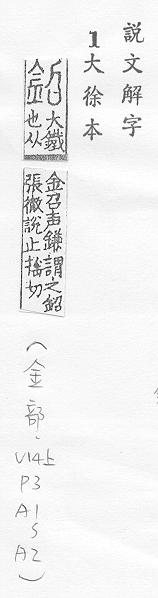 說文解字
1大徐本
鉊 大鐵
也从
金召声鎌謂之鉊
張徹說止搖切
(金部,
V14上
P3
A1
S
A2)